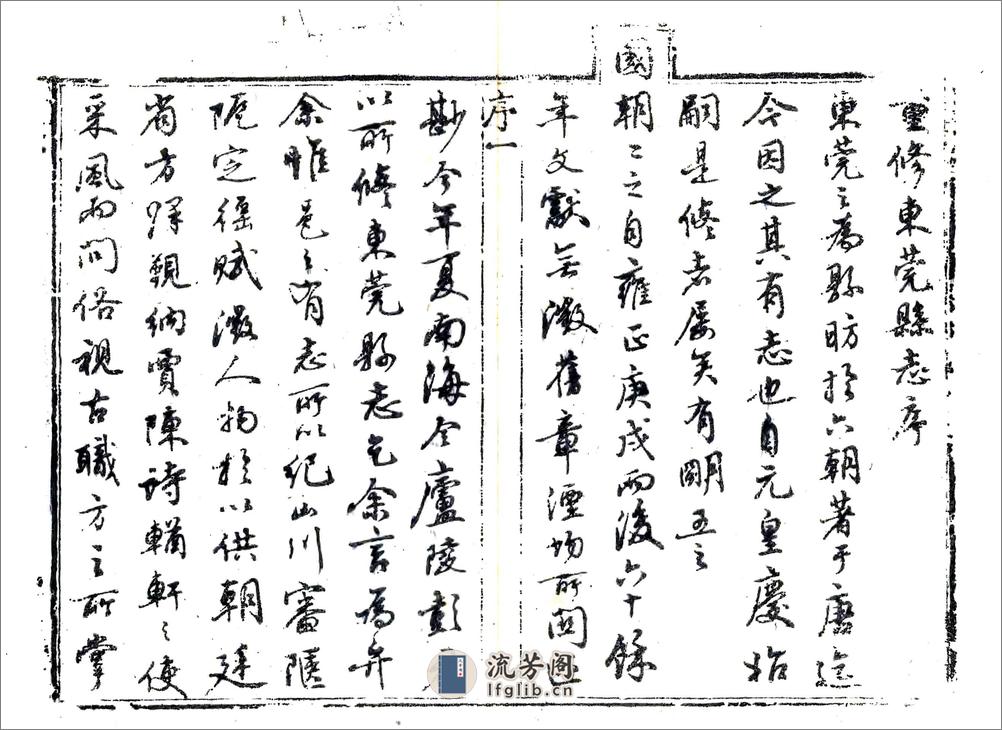 重修東莞縣志序
東莞之為縣昉於六朝著于唐迄
今因之其有志也自元皇慶始
嗣是修志屢矣有明五之
國朝二之自雍正庚戌而後六十餘
年文獻無徵舊章湮所關匪
序一
尠今年夏南海令廬陵彭
以所修東莞縣志乞余言為弁
余惟邑之有志所以紀山川審險
阨定徭賦徵人物於以供朝廷
省方肆覲納賈陳詩輶軒之使
采風而問俗視古職方之所掌
流芳阁
lfglib.cn